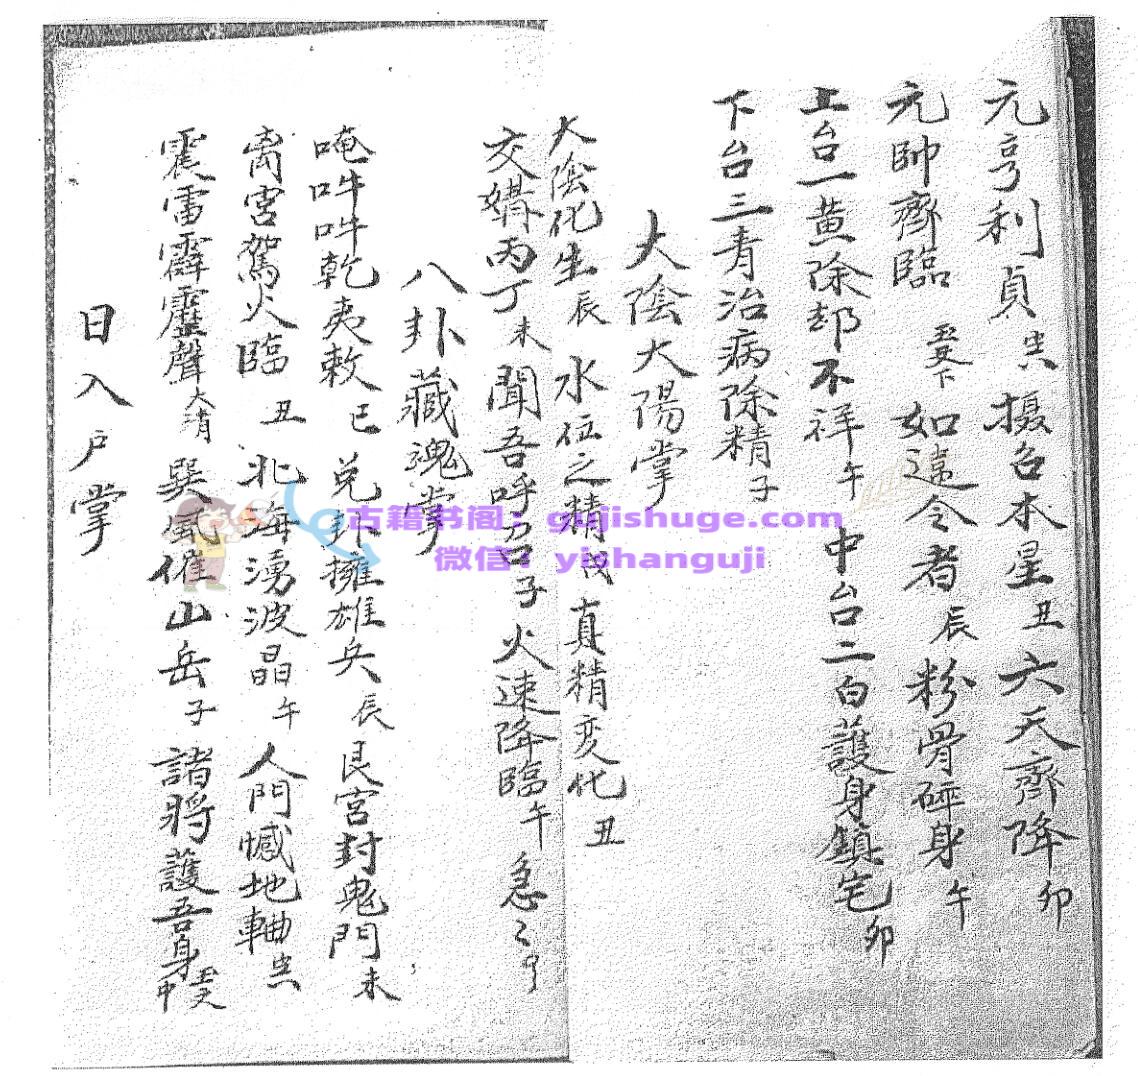 元亨利貞 摄召本星丑 六天齊降卯
元帥齊臨 如違令者辰 粉骨碎身午
上台一黄除却不祥午 中台二白護身鎮宅卯
下台三青治病除精子
大陰大陽掌
大陰化生辰 水位之精戌 真精变化丑
交媾丙丁未 聞吾呼召子 火速降臨午 急〻
八卦藏魂掌
唵吽吽乾夷敕巳 兑卦擁雄兵辰 艮宮封鬼門未
离宮駕火臨丑 北海湧波晶午 人門憾地軸
震雷霹靂聲 巽風催山岳子 諸將護吾身
日入户掌
古籍书阁：gujishuge.com
微信：yishanguji